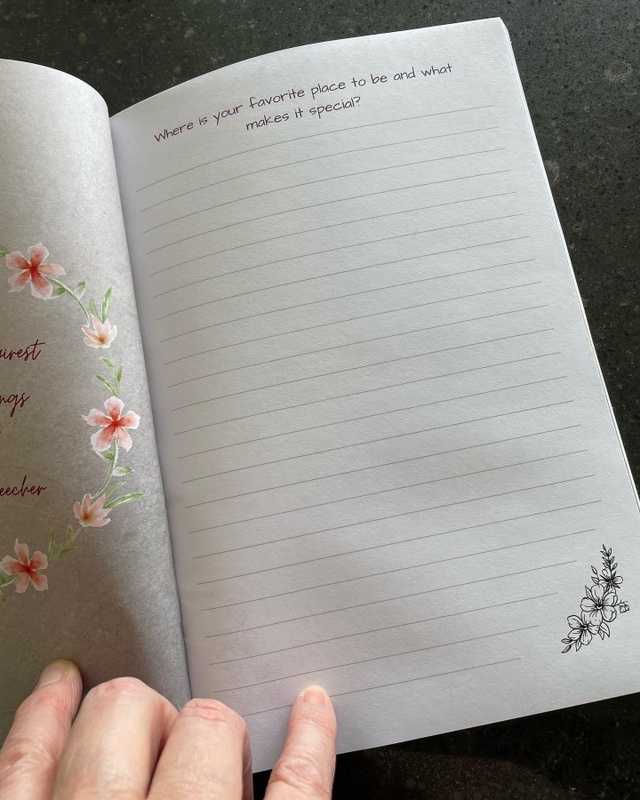 airest
ngs
eecher
Where is your favorite place to be and what
makes it special?